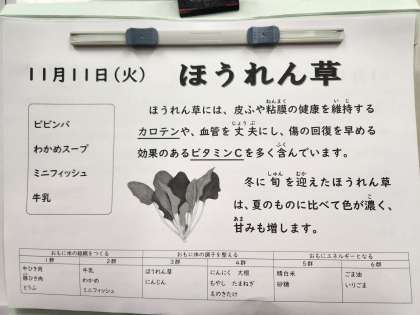 11月11日(火) ほうれん草
ビビンバ
わかめスープ
ミニフィッシュ
牛乳
ほうれん草には、皮ふや粘膜の健康を維持する
カロテンや、血管を丈夫にし、傷の回復を早める
効果のあるビタミンCを多く含んでいます。
冬に旬を迎えたほうれん草
は、夏のものに比べて色が濃く、
甘みも増します。
おもに体の組織をつくる おもに体の調子を整える おもにエネルギーとなる
1群 2群 3群 4群 5群 6群
牛ひき肉 牛乳 ほうれん草 にんにく 大根 精白米 ごま油
豚ひき肉 わかめ にんじん もやし たまねぎ 砂糖 いりごま
とうふ ミニフィッシュ えのきたけ